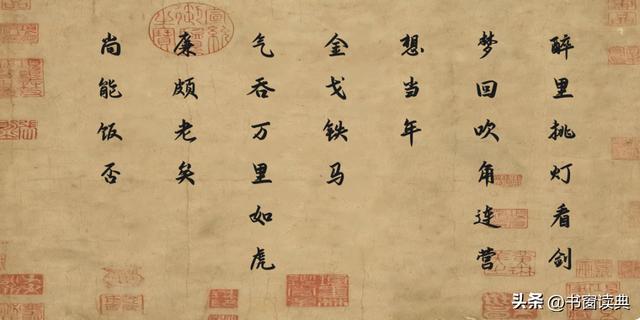 醉里挑灯看剑
梦回吹角连营
想当年
金戈铁马
气吞万里如虎
廉颇老矣
尚能饭否
头条@书窗读典